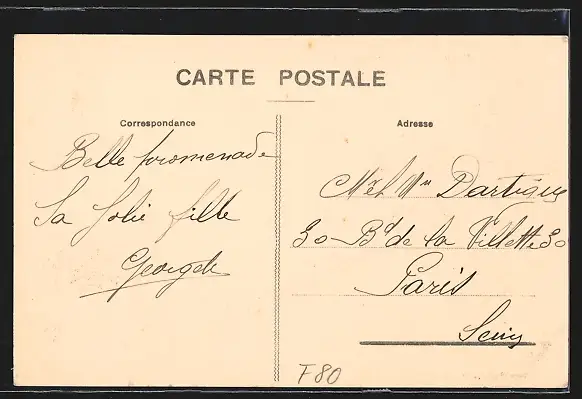 CARTE POSTALE
Correspondance
Adresse
Belle promenade
Sa Jolie fille
Georgette
Dartigues
30 - Bd de la Villette 30
Paris
Seine
F80